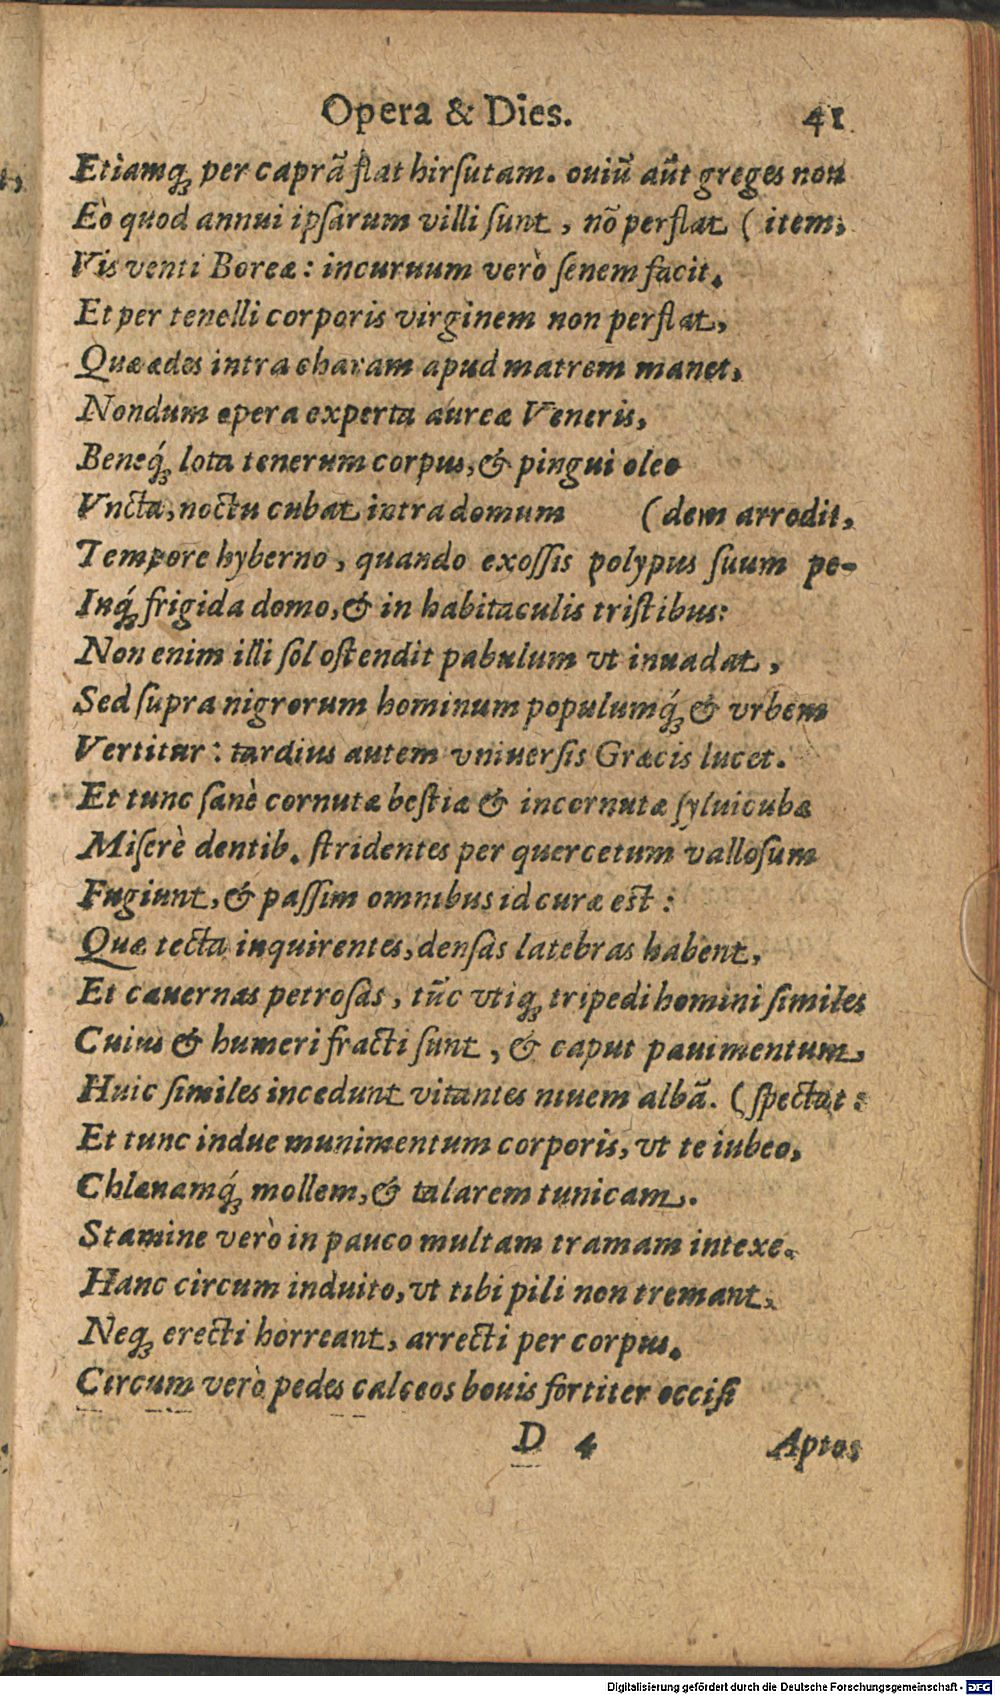 Opera & Dies. 41
Etiamq́ꝫ per caprã flat hirſutam. ouiũ aũt greges non
Eò quod annui ipſarum villi ſunt, nõ perflat ( item;
Vis venti Boreæ: incuruum verò ſenem facit.
Et per tenelli corporis virginem non perflat,
Quæ ædes intra charam apud matrem manet,
Nondum opera experta aureæ Veneris,
Beneq́ꝫ lota tenerum corpus, & pingui oleo
Vncta, noctu cubat intra domum ( dem arrodit,
Tempore hyberno, quando exoſſis polypus ſuum pe-
Inq́ꝫ frigida domo, & in habitaculis triſtibus:
Non enim illi ſol oſtendit pabulum vt inuadat,
Sed ſupra nigrorum hominum populumq́ꝫ & vrbem
Vertitur: tardius autem vniuerſis Græcis lucet.
Et tunc ſanè cornutæ beſtiæ & incornutæ ſyluicubæ
Miſerè dentib. ſtridentes per quercetum valloſum
Fugiunt, & paſſim omnibus id curæ eſt:
Quæ tecta inquirentes, denſas latebras habent,
Et cauernas petroſas, tũc vtiqꝫ tripedi homini ſimiles
Cuius & humeri fracti ſunt, & caput pauimentum
Huic ſimiles incedunt vitantes niuem albã. ( ſpectat:
Et tunc indue munimentum corporis, vt te iubeo,
Chlænamq́ꝫ mollem, & talarem tunicam.
Stamine verò in pauco multam tramam intexe.
Hanc circum induito, vt tibi pili non tremant,
Neqꝫ erecti horreant, arrecti per corpus.
Circum verò pedes calceos bouis fortiter occiſi
D 4 Aptos
Digitalisierung gefördert durch die Deutsche Forschungsgemeinschaft - DFG